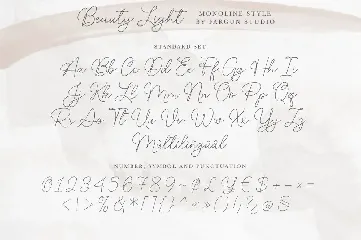 Beauty Light
MONOLINE STYLE
BY FARGUN STUDIO
STANDARD SET
Aa Bb Cc Dd Ee Ff Gg Hh Ii
Jj Kk Ll Mm Nn Oo Pp Qq
Rr Ss Tt Uu Vv Ww Xx Yy Zz
Multilingual
NUMBER, SYMBOL AND PUNCTUATION
0123456789